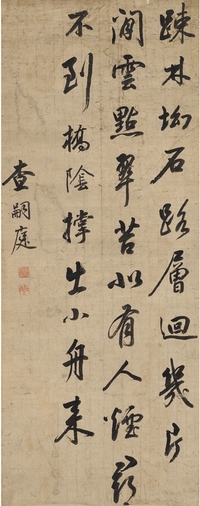 疎林坳石路層迴幾片
閒雲點翠苔似有人煙尋
不到橋陰撑出小舟来
查嗣庭